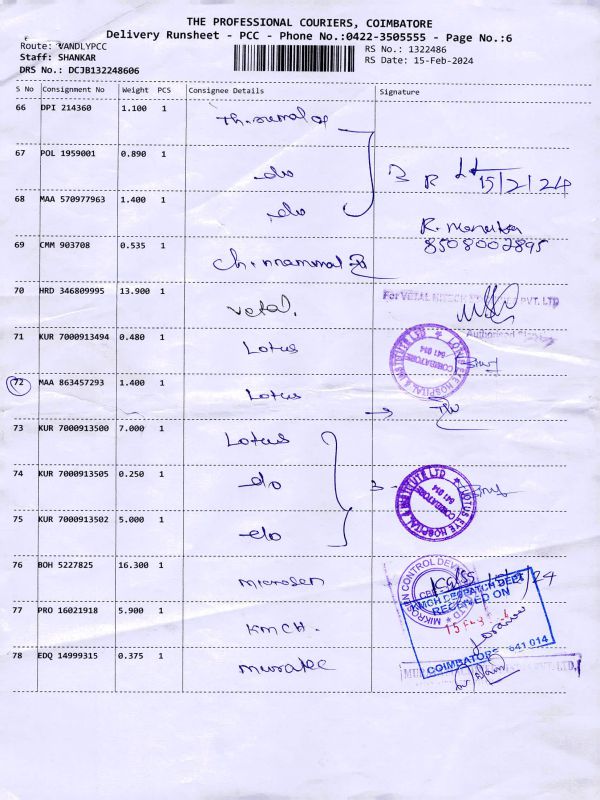 THE PROFESSIONAL COURIERS, COIMBATORE
Delivery Runsheet - PCC - Phone No.:0422-3505555 - Page No.:6
Route: VANDLYPCC RS No.: 1322486
Staff: SHANKAR RS Date: 15-Feb-2024
DRS No.: DCJB132248606
S No Consignment No Weight PCS Consignee Details Signature
66 DPI 214360 1.100 1
67 POL 1959001 0.890 1 do 3 R 15/2/24
68 MAA 570977963 1.400 1 do
R.
69 CMM 903708 0.535 1 8508002895
70 HRD 346809995 13.900 1 Vetal. For VETAL PVT. LTD
Authorised
71 KUR 7000913494 0.480 1 Lotus LOTUS EYE HOSPITAL & INSTITUTE LTD COIMBATORE 641 014
72 MAA 863457293 1.400 1 Lotus
73 KUR 7000913500 7.000 1 Lotus
74 KUR 7000913505 0.250 1 do 3 LOTUS EYE HOSPITAL & INSTITUTE LTD COIMBATORE 641 014
75 KUR 7000913502 5.000 1 do
76 BOH 5227825 16.300 1 Microsen MIKROSUN CONTROL
77 PRO 16021918 5.900 1 KMCH. KMCH DESPATCH DEPT
RECEIVED ON
COIMBATORE - 641 014
78 EDQ 14999315 0.375 1 Muratec PVT. LTD.